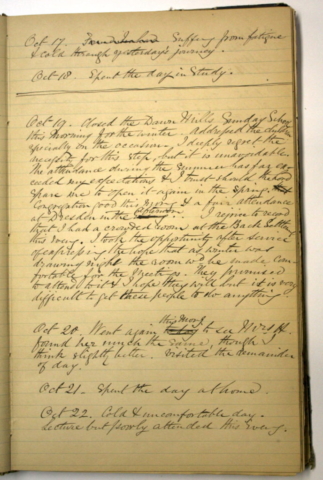 Oct 17. Suffering from fatigue
& cold through yesterday's journey.
Oct 18. Spent the day in Study.
Oct 19. Closed the Dawn Mills Sunday School
this morning for the winter. Addressed the children
specially on the occasion. I deeply regret the
necessity for this step, but it is unavoidable.
The attendance during the Summer has far ex-
ceeded my expectations & I trust should the Lord
spare me to open it again in the Spring.
Congregation good this Morning & a fair attendance
at Dresden in the afternoon. I rejoice to record
that I had a crowded room at the Back Settlement
this Eveng. I took the opportunity after service
of expressing the hope that as winter was
drawing nigh the room wd be made com-
fortable for the Meetings. They promised
to attend to it & I hope they will but it is very
difficult to get these people to do anything
Oct 20. Went again this Morng to see Mrs H.
found her much the same, though I
think slightly better. Visited the remainder
of day.
Oct 21. Spent the day at home
Oct 22. Cold & uncomfortable day.
Lecture but poorly attended this Eveng.